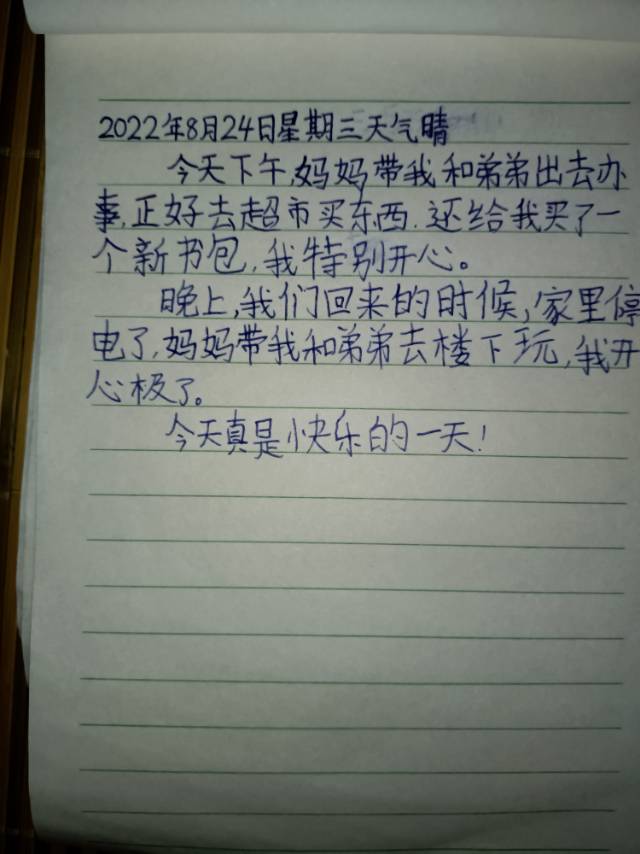 2022年8月24日星期三天气晴
今天下午,妈妈带我和弟弟出去办
事,正好去超市买东西.还给我买了一
个新书包,我特别开心。
晚上,我们回来的时候,家里停
电了,妈妈带我和弟弟去楼下玩,我开
心极了。
今天真是快乐的一天!